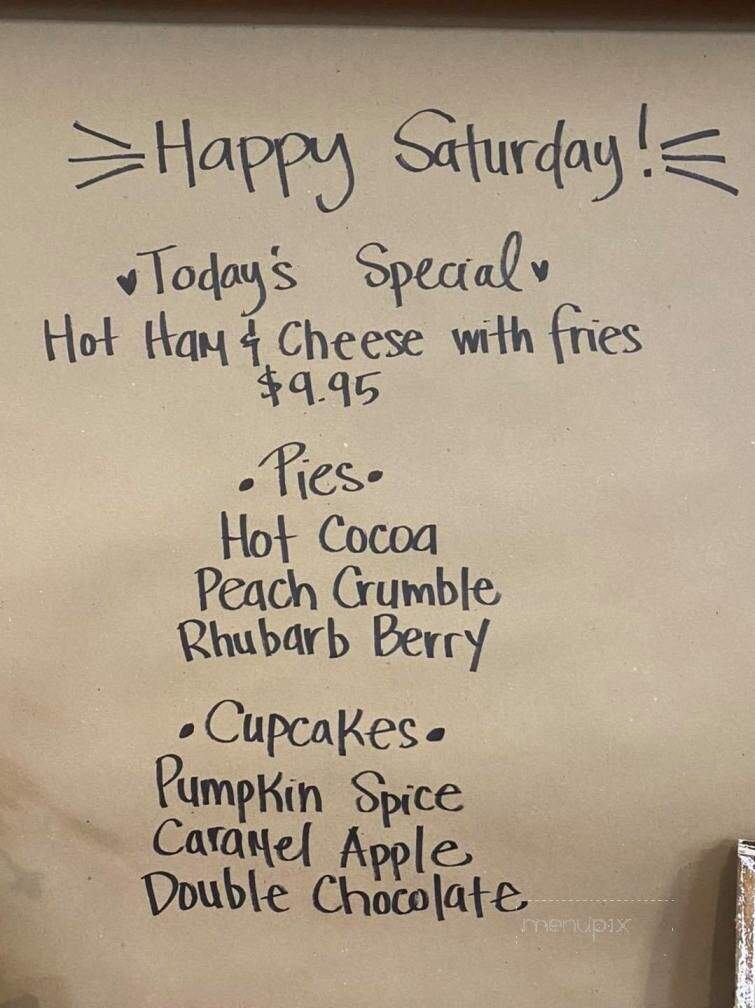 Happy Saturday!
Today's Special
Hot Ham & Cheese with fries
$9.95
• Pies •
Hot Cocoa
Peach Crumble
Rhubarb Berry
• Cupcakes •
Pumpkin Spice
Caramel Apple
Double Chocolate
menupix